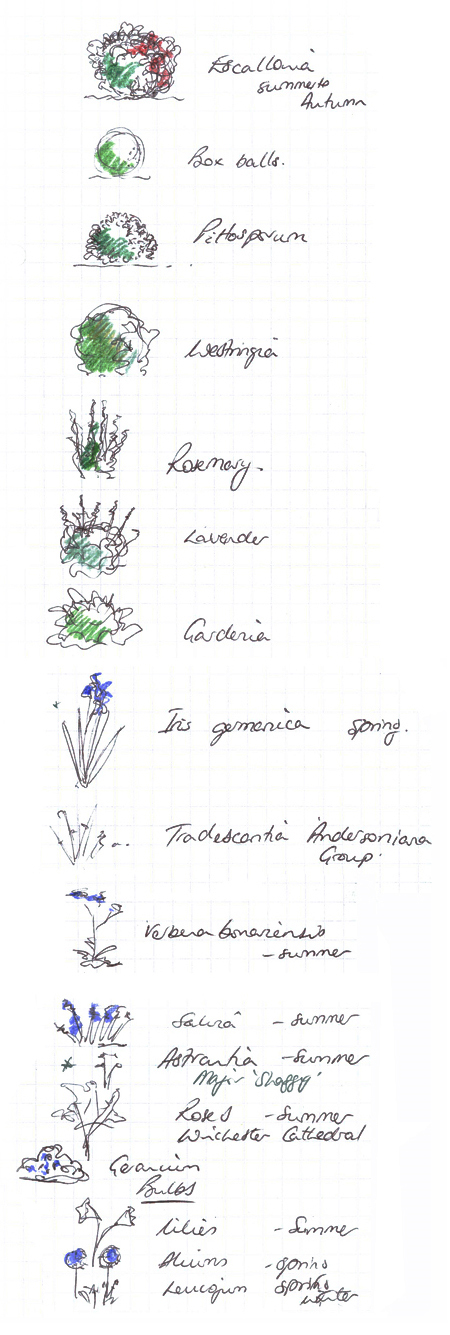 Escallonia
summer to
Autumn
Box balls.
Pittosporum
Westringia
Rosemary.
Lavender
Gardenia
Iris germanica spring.
Tradescantia Andersoniana
Group.
Verbena bonariensis
- summer
Salvia - summer
Astrantia - summer
Major 'Shaggy'
Roses - summer
Winchester Cathedral
Geranium
Bulbs
Lilies - summer
Alliums - spring
Leucojum spring
winter